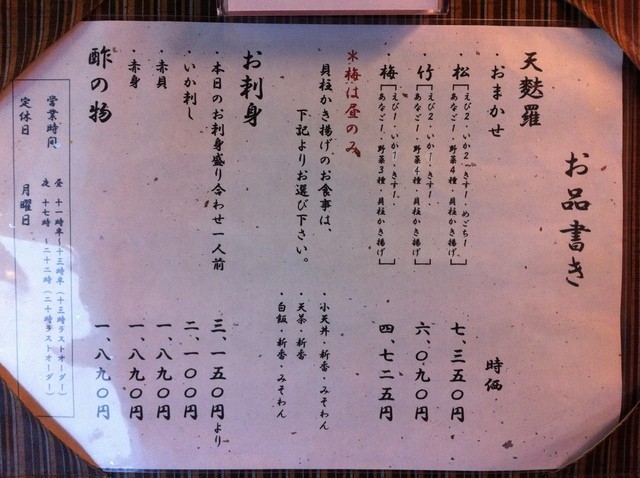 お品書き
天麩羅
・おまかせ 時価
・松[えび2・いか2・きす1・めごち1 七、三五〇円
あなご1・野菜4種・貝柱かき揚げ]
・竹[えび2・いか1・きす1 六、〇九〇円
あなご1・野菜4種・貝柱かき揚げ]
・梅[えび1・いか1・きす1 四、七二五円
あなご1・野菜3種・貝柱かき揚げ]
※梅は昼のみ
貝柱かき揚げのお食事は、
下記よりお選び下さい。
・小天丼・新香・みそわん
・天茶・新香
・白飯・新香・みそわん
お刺身
・本日のお刺身盛り合わせ一人前 三、一五〇円より
・いか刺し 二、一〇〇円
・赤貝 一、八九〇円
・赤身 一、八九〇円
酢の物 一、八九〇円
営業時間 昼 十一時半〜十三時半(十三時ラストオーダー)
夜 十七時 〜二十二時(二十時ラストオーダー)
定休日 月曜日